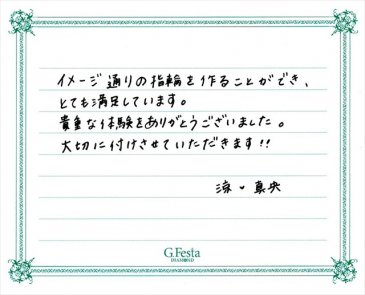 イメージ通りの指輪を作ることができ、
とても満足しています。
貴重な体験をありがとうございました。
大切に付けさせていただきます!!
涼・真央
G.Festa
DIAMOND